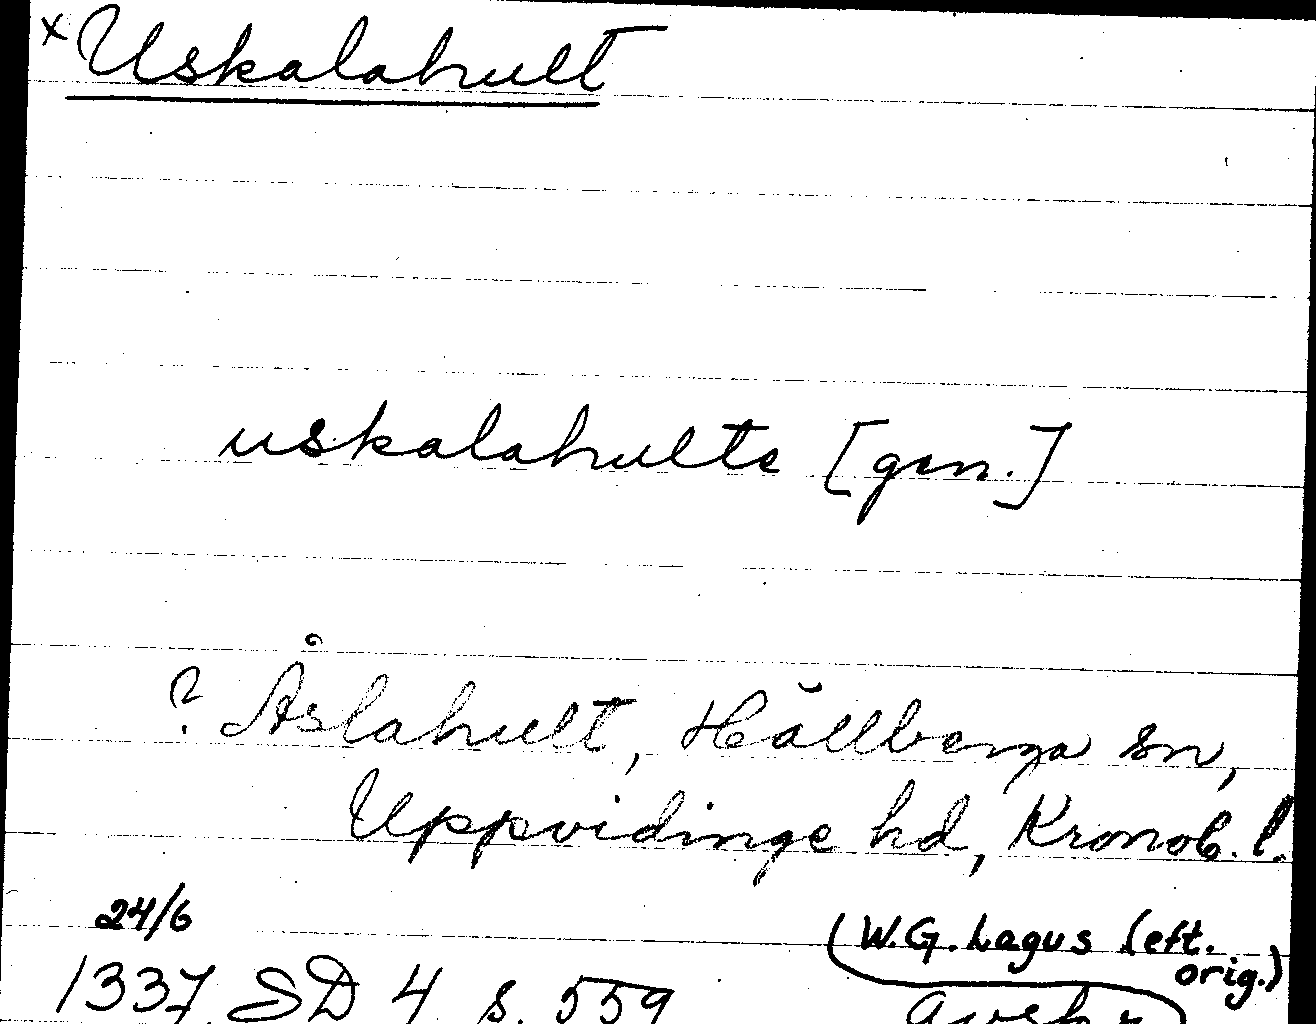 x Uskalahult
uskalahults [gen.]
? Åslahult, Hällberga sn,
Uppvidinge hd, Kronob. l.
24/6
(W.G. Lagus (eft.
orig.)
1337 SD 4 s. 559